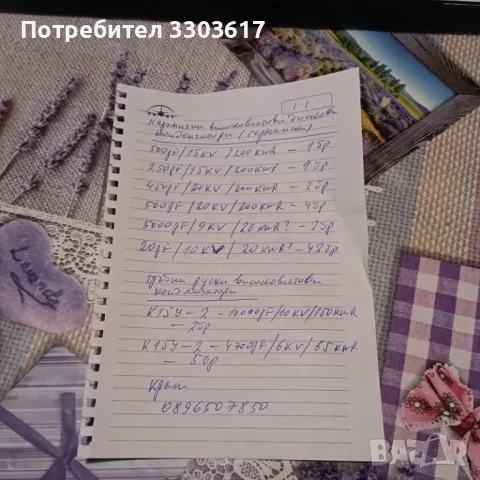 Потребител 3303617
11
Керамични високоволтови дискови
кондензатори (германски)
500pF/15KV/200KVAR - 1бр
250pF/15KV/200KVAR - 9бр
450pF/20KV/200KVAR - 2бр
500pF/20KV/200KVAR - 4бр
5000pF/9KV/20KVAR? - 2бр
20pF/10KV/20KVAR? - 42бр
Тръбни руски високоволтови
кондензатори
К15У-2 - 10000pF/10KV/150KVAR
- 2бр
К15У-2 - 4700pF/6KV/65KVAR
- 5бр
0896507850
Lavande
BAZAR